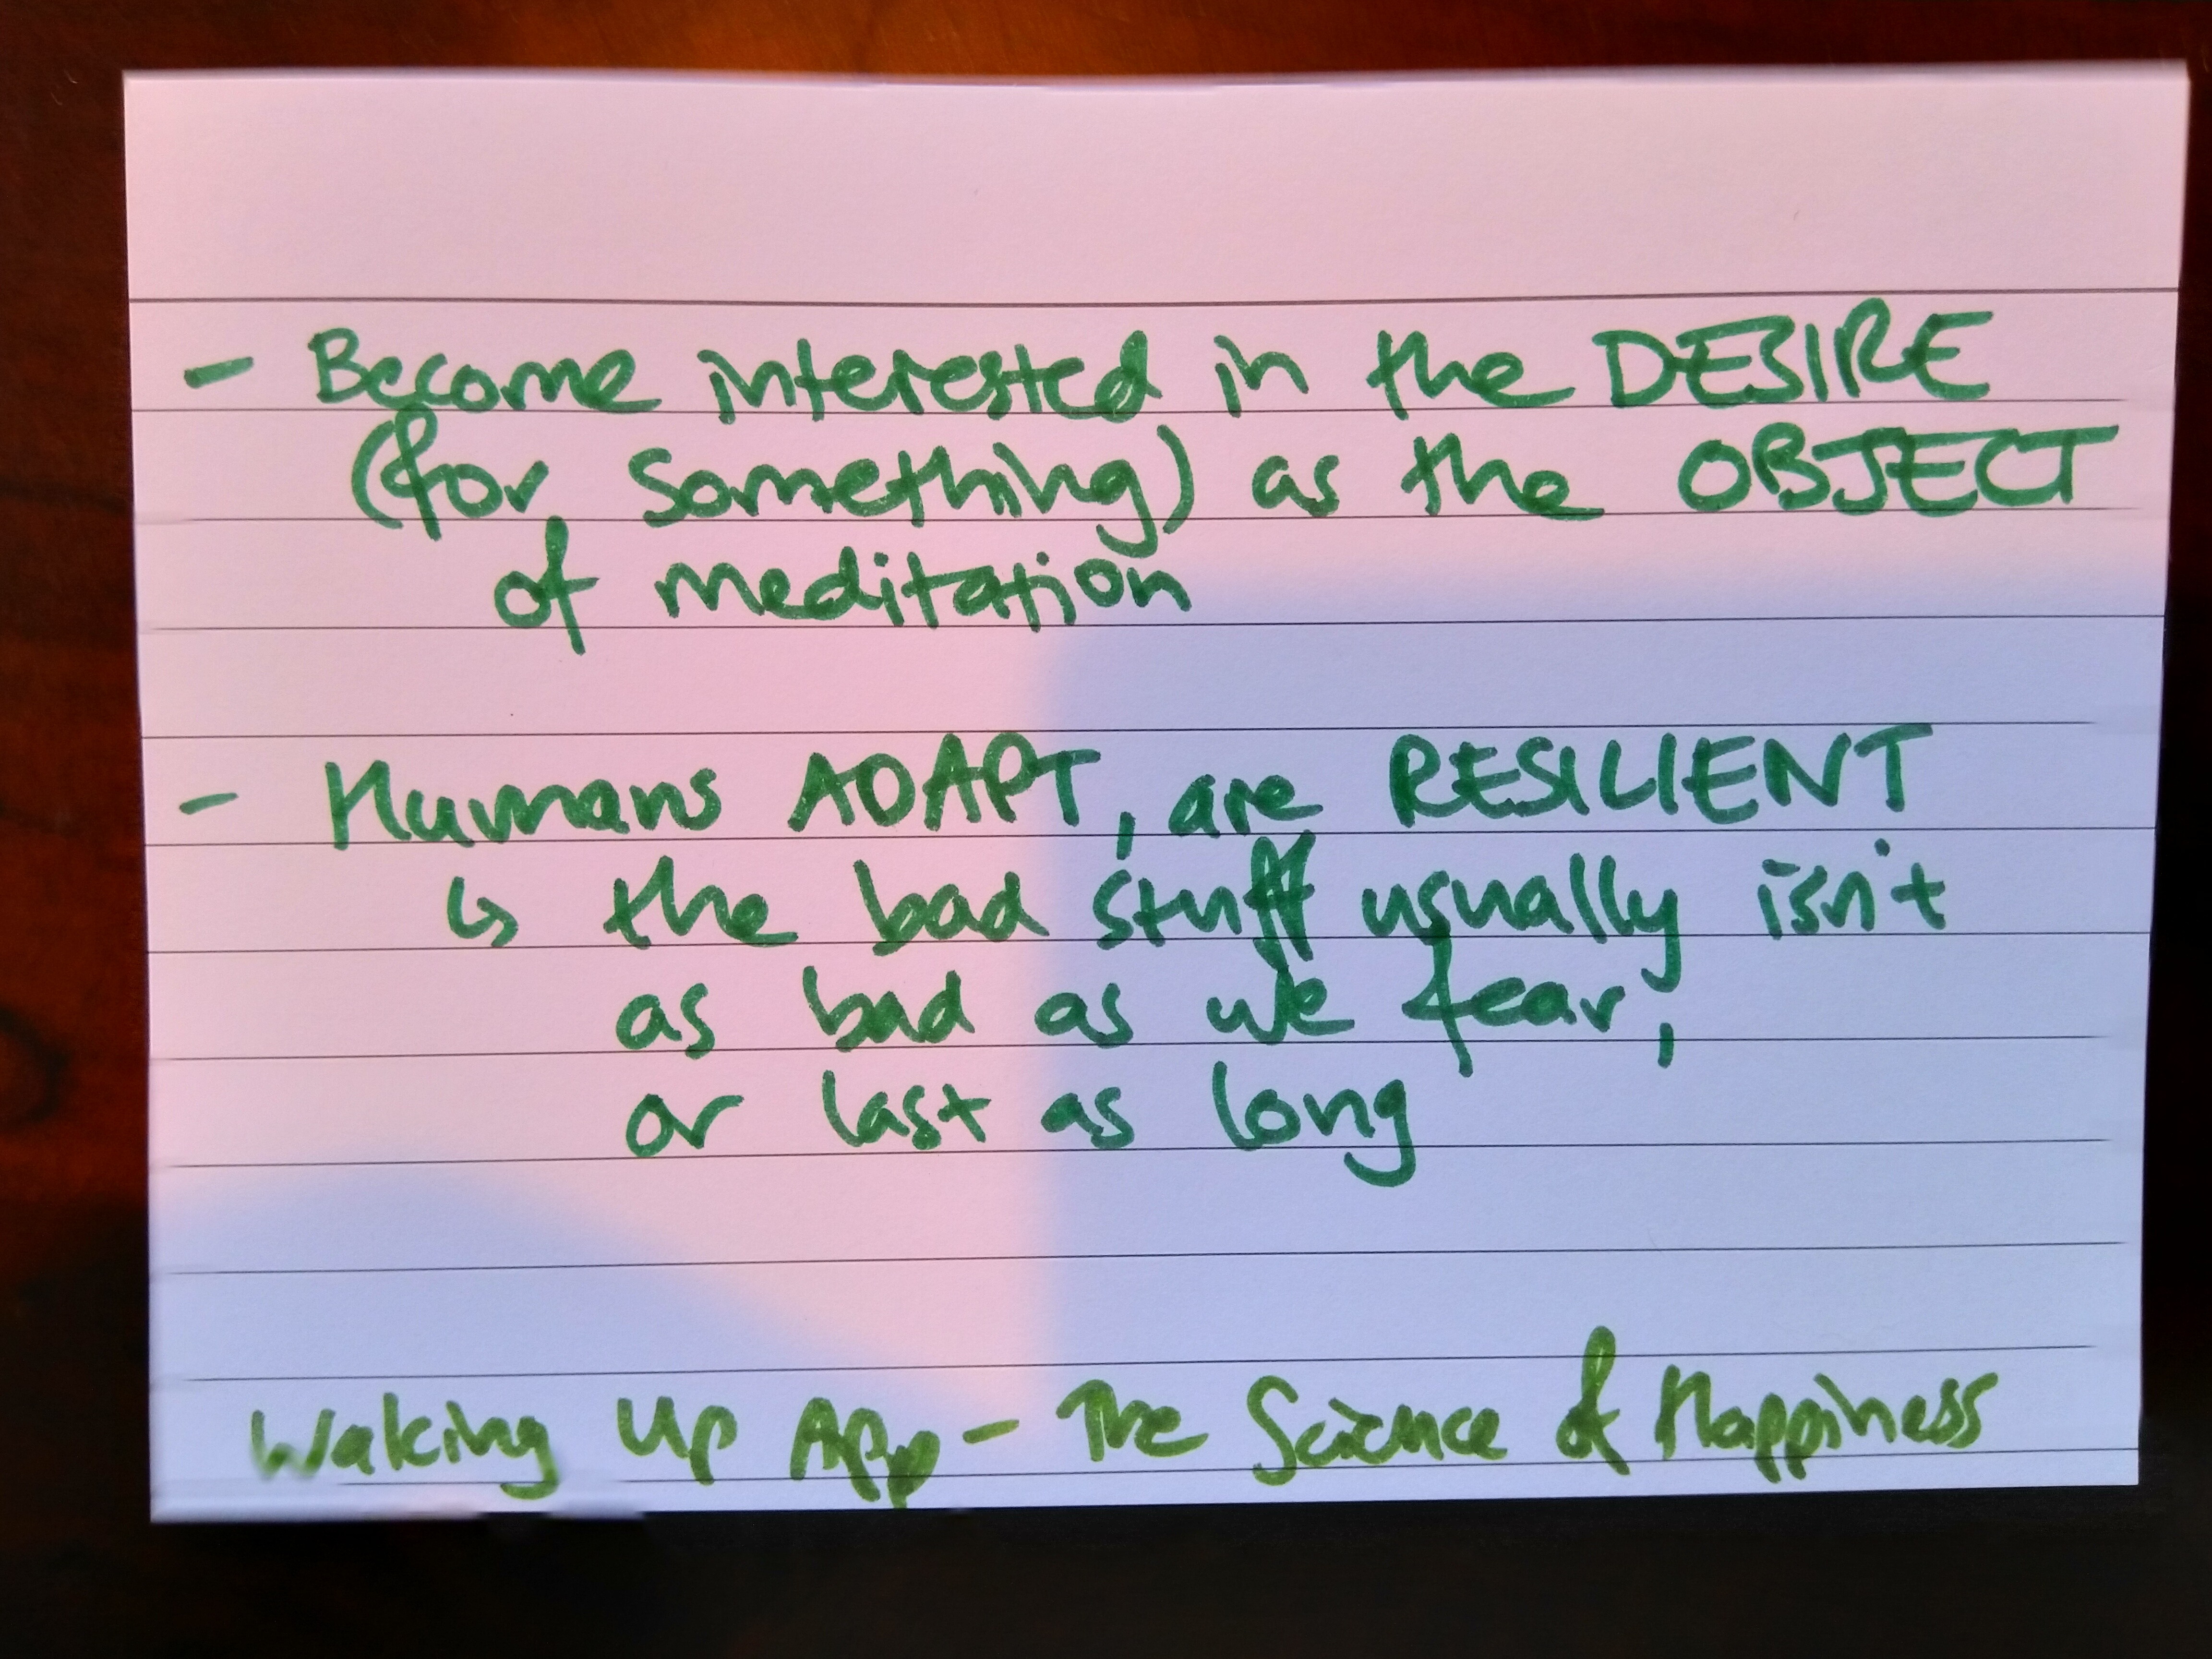 - Become interested in the DESIRE
(for something) as the OBJECT
of meditation
- Humans ADAPT, are RESILIENT
↳ the bad stuff usually isn't
as bad as we fear,
or last as long
Waking Up App - The Science of Happiness